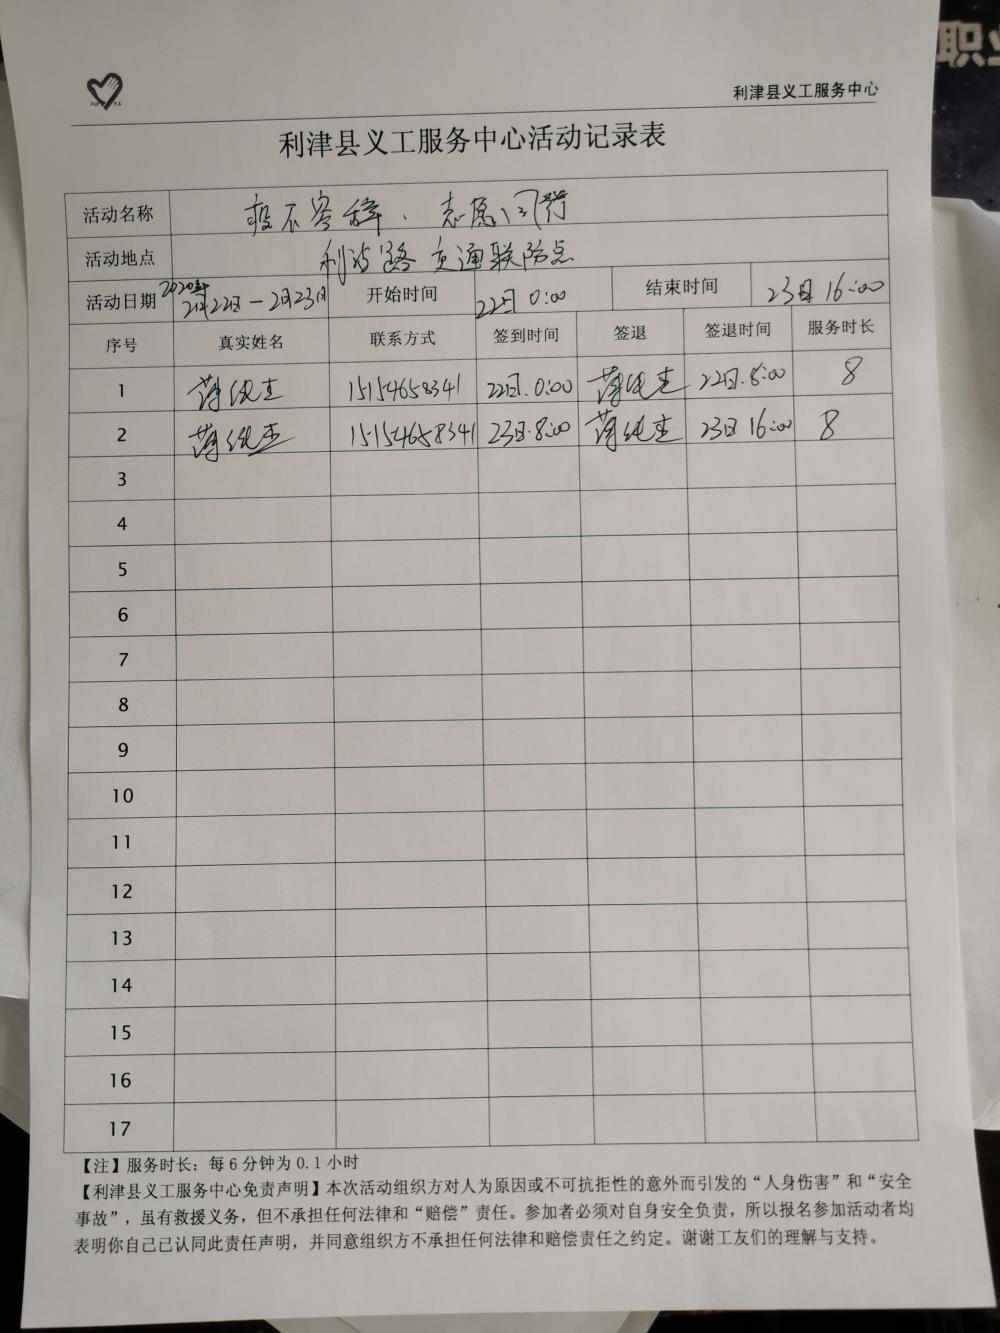 利津县义工服务中心
利津县义工服务中心活动记录表
活动名称 疫不容辞、志愿同行
活动地点 利 路交通联防点
活动日期 2020年2月22日-2月23日 开始时间 22日 0:00 结束时间 23日 16:00
序号 真实姓名 联系方式 签到时间 签退 签退时间 服务时长
1 薄纯杰 15154658341 22日.0:00 薄纯杰 22日.8:00 8
2 薄纯杰 15154658341 23日8:00 薄纯杰 23日16:00 8
3
4
5
6
7
8
9
10
11
12
13
14
15
16
17
【注】服务时长：每6分钟为0.1小时
【利津县义工服务中心免责声明】本次活动组织方对人为原因或不可抗拒性的意外而引发的“人身伤害”和“安全
事故”，虽有救援义务，但不承担任何法律和“赔偿”责任。参加者必须对自身安全负责，所以报名参加活动者均
表明你自己已认同此责任声明，并同意组织方不承担任何法律和赔偿责任之约定。谢谢工友们的理解与支持。